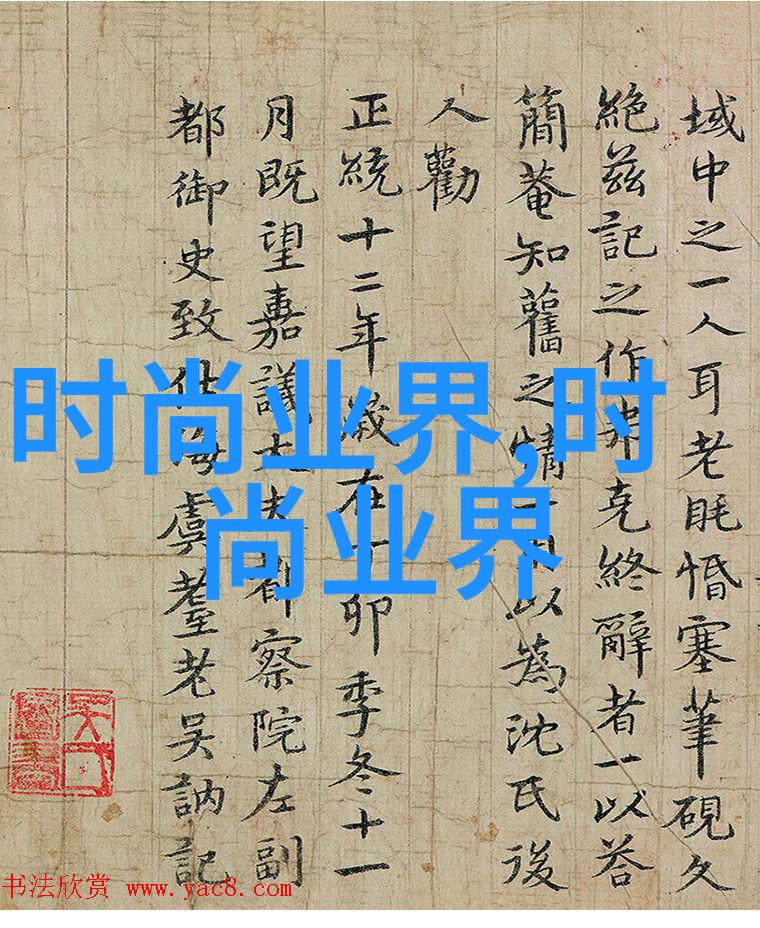 域中之一人耳老眊惛塞筆硯久
絕茲記之作弗克終辭者一以荅
簡菴知舊之情一用以為沈氏後
人勸
正統十二年歲在丁卯季冬十一
月既望嘉議大夫都察院左副
都御史致仕海虞耋老吳訥記
时尚业界,时
尚业界
书法欣赏 www.yac8.com